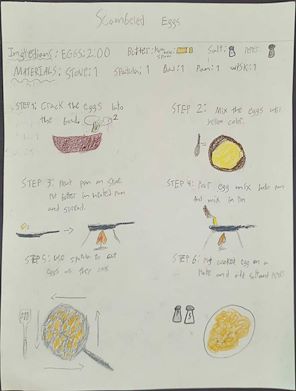 Scombeled Eggs
Ingredients: EGGS: 2.00 Butter: Salt:
MATERIALS: STOVE: 1 Spatula: 1 Bowl: 1 Pan: 1 WISK: 1
STEP 1: Crack the eggs into
the bowl x2
STEP 2: Mix the eggs until
yellow color.
STEP 3: Heat pan on Stove
Put butter in heated pan
and spread.
STEP 4: Pour egg mix into pan
and mix in pan
STEP 5: Use spatula to cut
eggs as they cook
STEP 6: Put cooked egg on a
Plate and add salt and